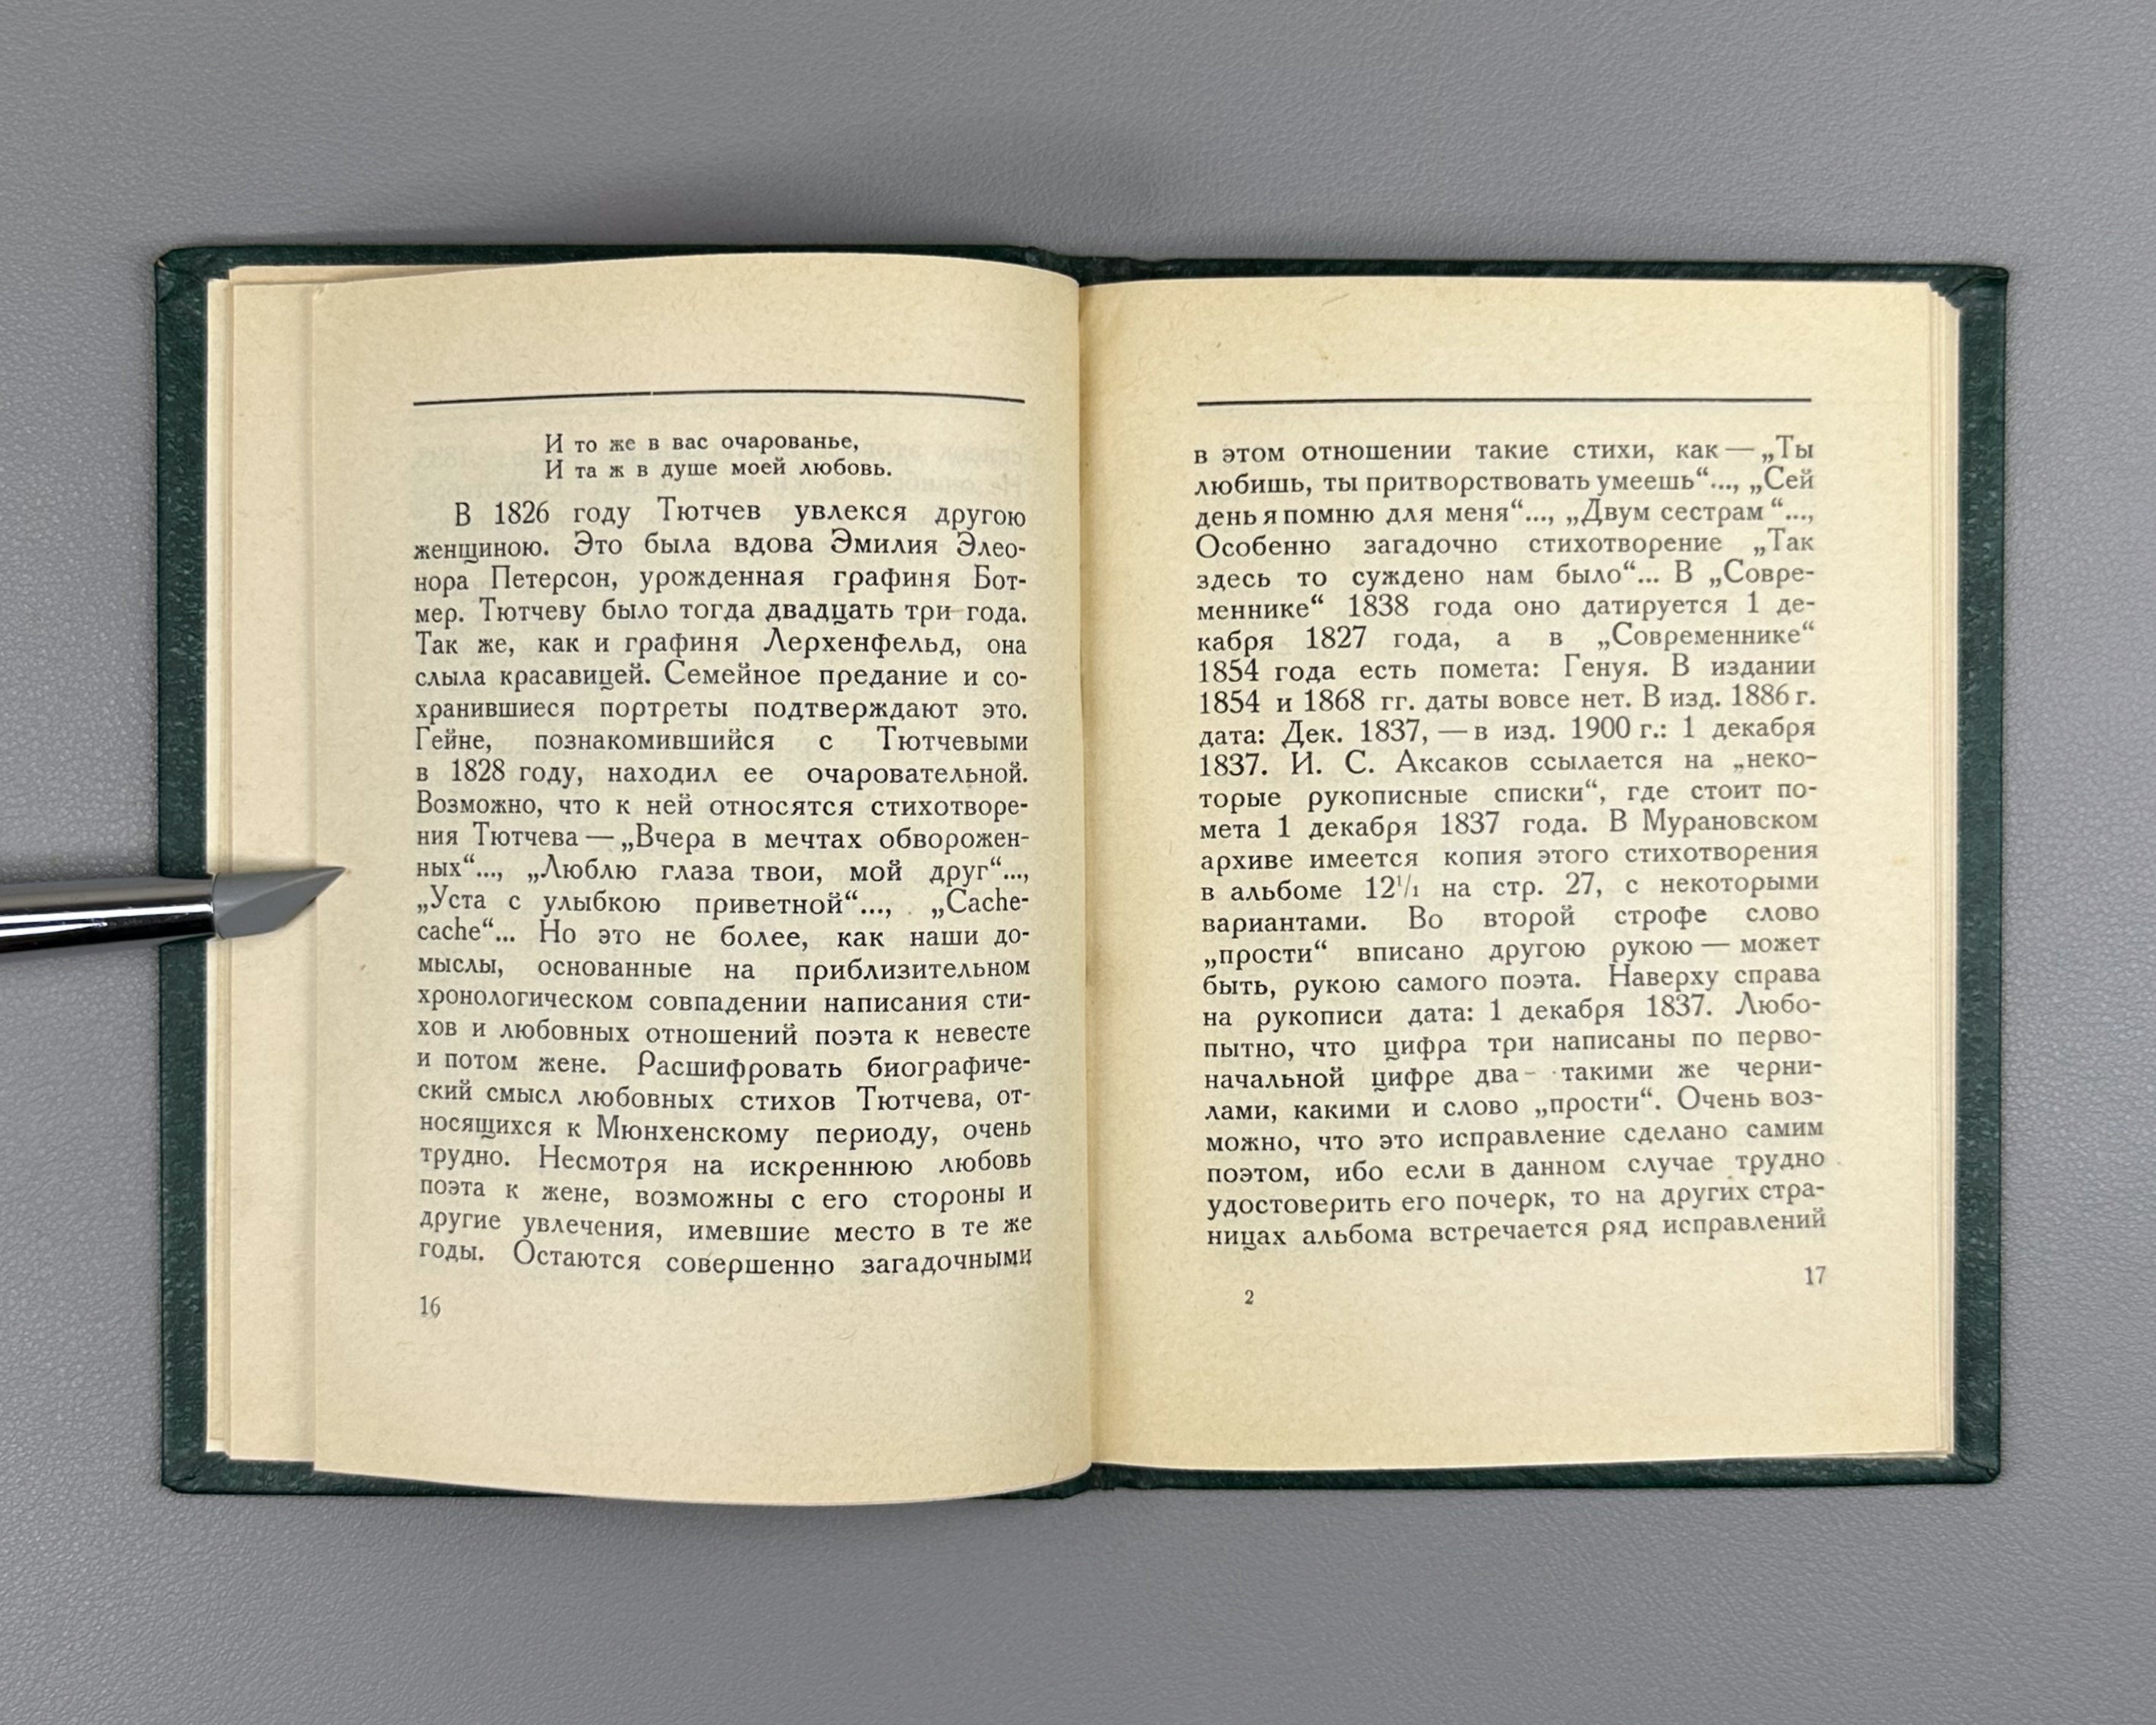 И то же в вас очарованье,
И та ж в душе моей любовь.
В 1826 году Тютчев увлекся другою
женщиною. Это была вдова Эмилия Элео-
нора Петерсон, урожденная графиня Бот-
мер. Тютчеву было тогда двадцать три года.
Так же, как и графиня Лерхенфельд, она
слыла красавицей. Семейное предание и со-
хранившиеся портреты подтверждают это.
Гейне, познакомившийся с Тютчевыми
в 1828 году, находил ее очаровательной.
Возможно, что к ней относятся стихотворе-
ния Тютчева — „Вчера в мечтах обворожен-
ных“..., „Люблю глаза твои, мой друг“...,
„Уста с улыбкою приветной“..., „Cache-
cache“... Но это не более, как наши до-
мыслы, основанные на приблизительном
хронологическом совпадении написания сти-
хов и любовных отношений поэта к невесте
и потом жене. Расшифровать биографиче-
ский смысл любовных стихов Тютчева, от-
носящихся к Мюнхенскому периоду, очень
трудно. Несмотря на искреннюю любовь
поэта к жене, возможны с его стороны и
другие увлечения, имевшие место в те же
годы. Остаются совершенно загадочными
16
в этом отношении такие стихи, как — „Ты
любишь, ты притворствовать умеешь“..., „Сей
день я помню для меня“..., „Двум сестрам“...,
Особенно загадочно стихотворение „Так
здесь то суждено нам было“... В „Совре-
меннике“ 1838 года оно датируется 1 де-
кабря 1827 года, а в „Современнике“
1854 года есть помета: Генуя. В издании
1854 и 1868 гг. даты вовсе нет. В изд. 1886 г.
дата: Дек. 1837, — в изд. 1900 г.: 1 декабря
1837. И. С. Аксаков ссылается на „неко-
торые рукописные списки“, где стоит по-
мета 1 декабря 1837 года. В Мурановском
архиве имеется копия этого стихотворения
в альбоме 12¹/₁ на стр. 27, с некоторыми
вариантами. Во второй строфе слово
„прости“ вписано другою рукою — может
быть, рукою самого поэта. Наверху справа
на рукописи дата: 1 декабря 1837. Любо-
пытно, что цифра три написаны по перво-
начальной цифре два - такими же черни-
лами, какими и слово „прости“. Очень воз-
можно, что это исправление сделано самим
поэтом, ибо если в данном случае трудно
удостоверить его почерк, то на других стра-
ницах альбома встречается ряд исправлений
2
17